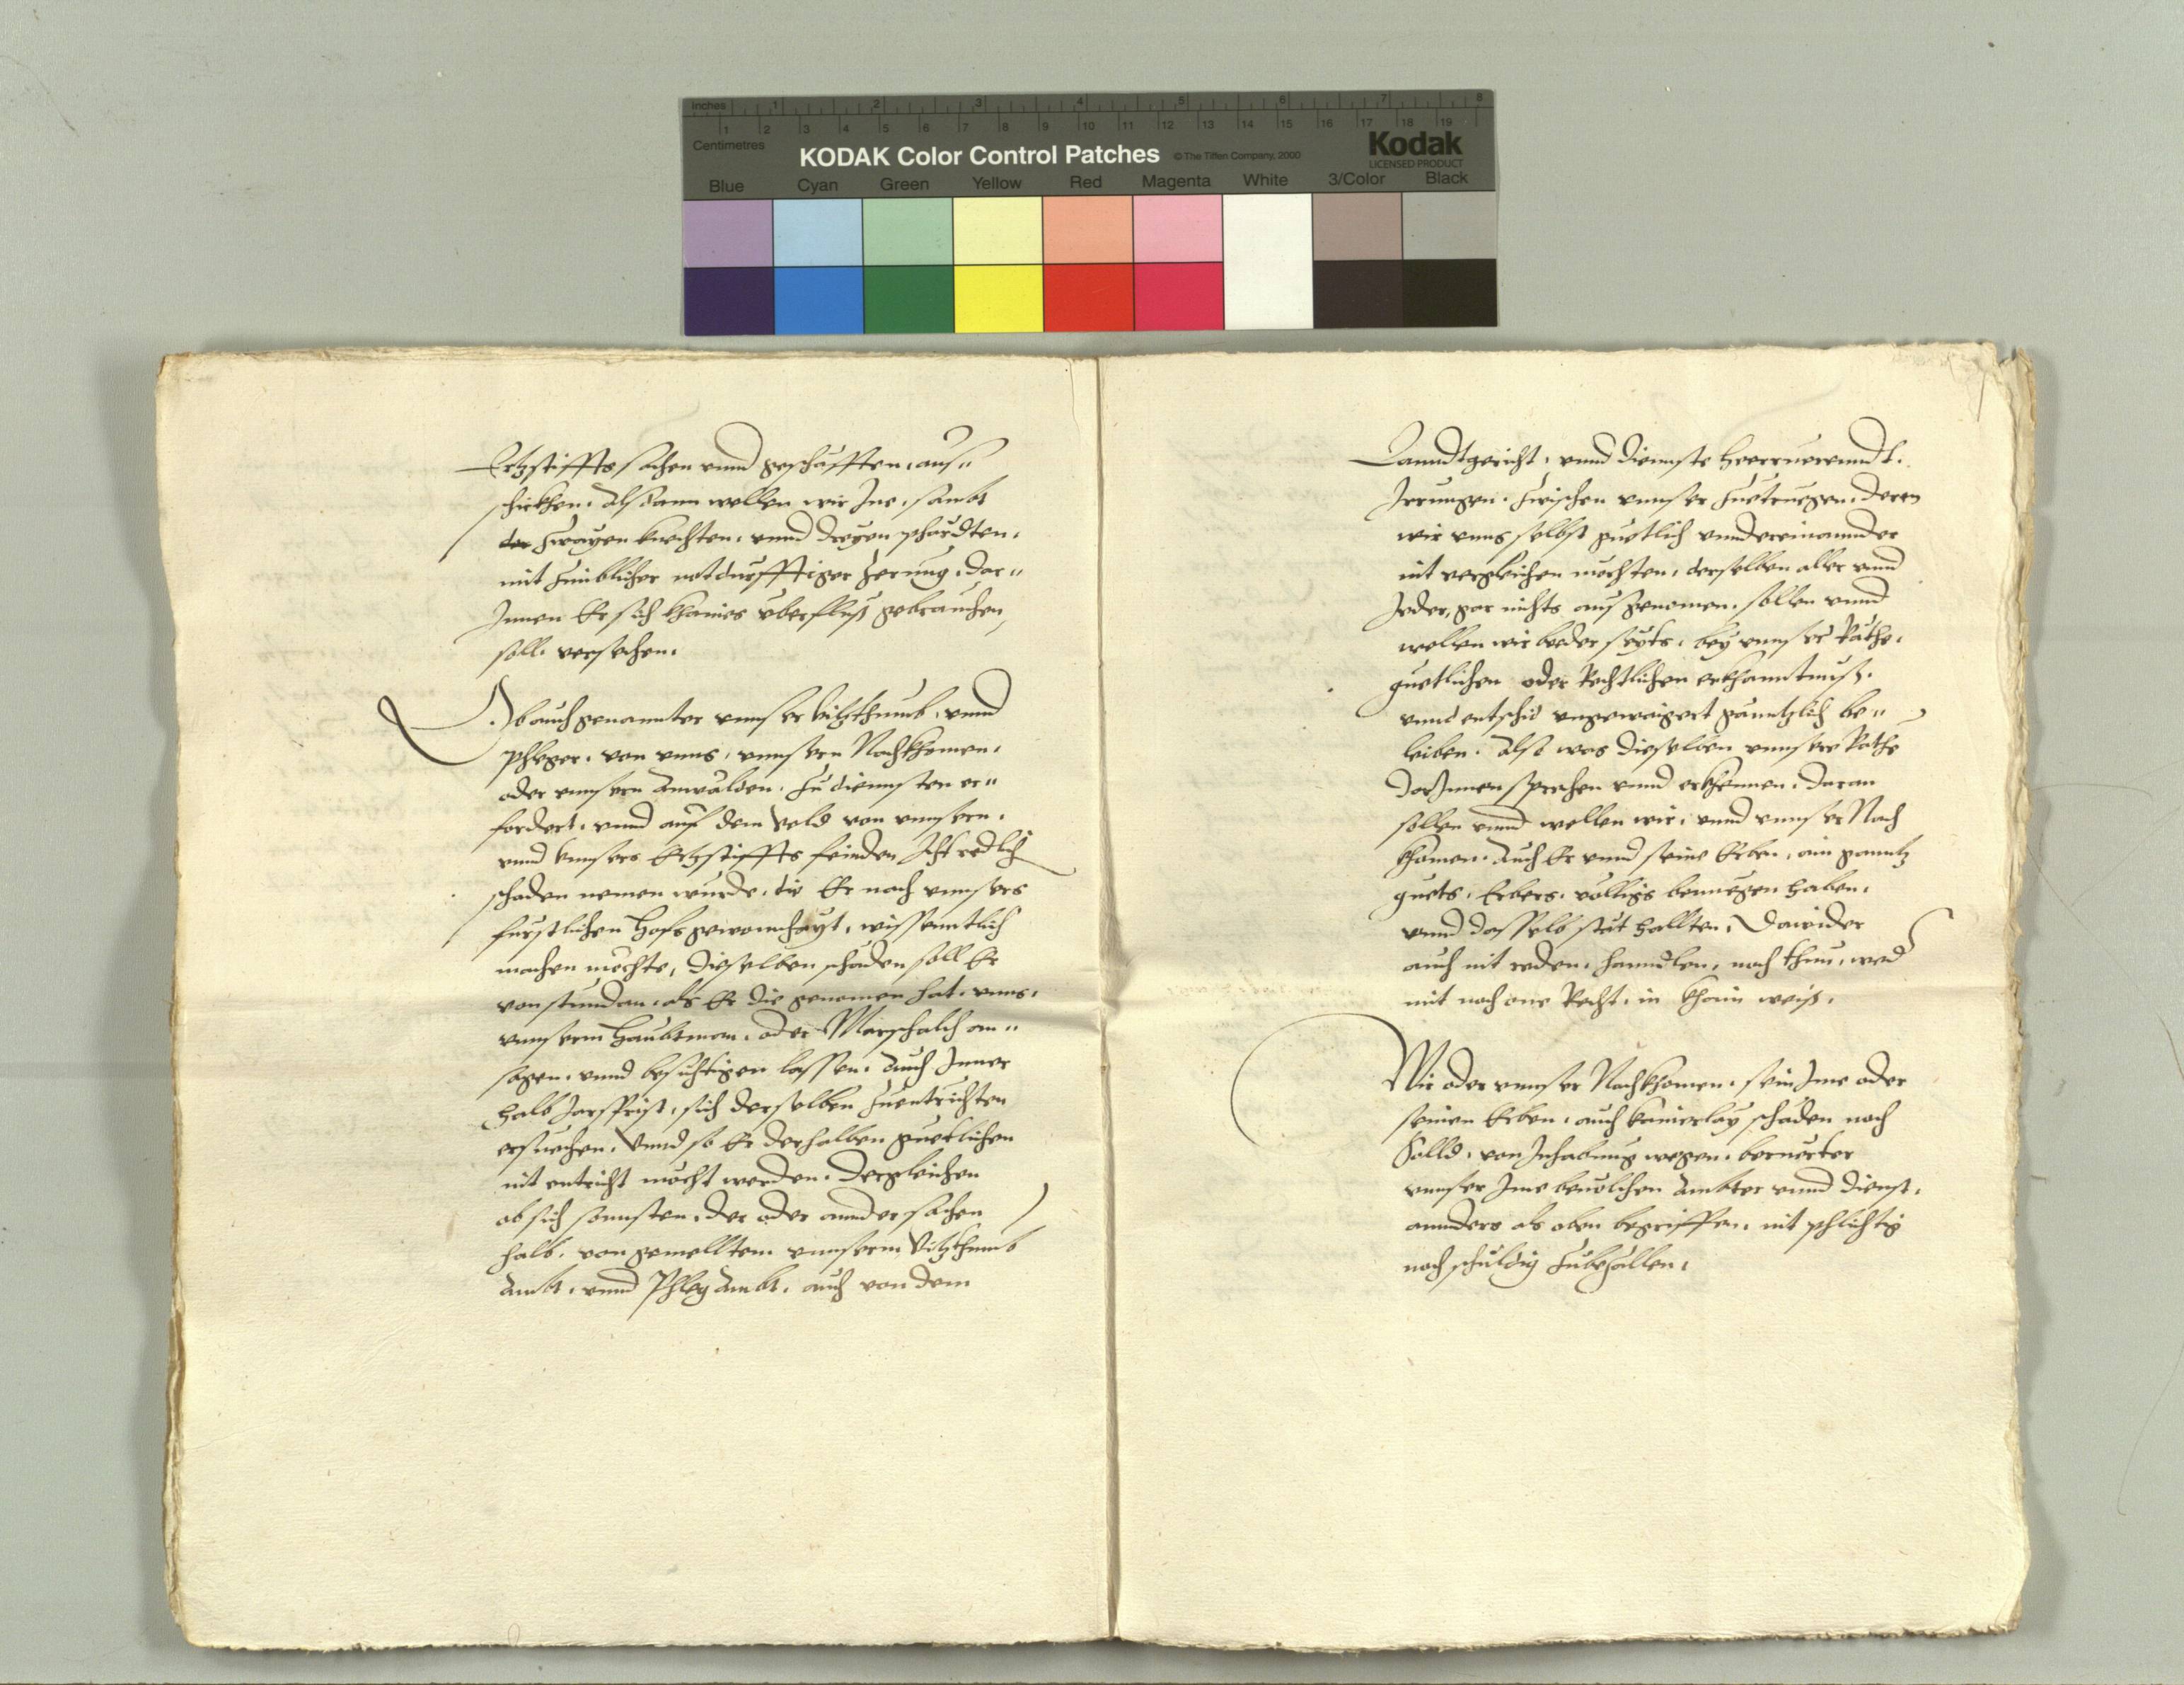 inches 1 2 3 4 5 6 7 8
1 2 3 4 5 6 7 8 9 10 11 12 13 14 15 16 17 18 19
Centimetres
KODAK Color Control Patches © The Tiffen Company, 2000
Kodak
LICENSED PRODUCT
Blue Cyan Green Yellow Red Magenta White 3/Color Black
Ertzstiffts sachen vnnd geschäfften, aus=
schickhen. Alsdann wellen wir Jne, sambt
der zwayen knechten, vnnd dreyen phärdten,
mit zimblicher notdurfftiger zerung, dar=
Jnnen Er sich khaines überfluß gebrauchen
soll, versehen.
Ob auch genannter vnnser Vitzthumb, vnnd
Phleger, von vnns, vnnsern Nachkhomen,
oder vnnsern Anwälden, zu diennsten er=
fordert, vnnd auf dem Veld von vnnsern,
vnnd vnnsers Ertzstiffts feinden Icht redlich
schaden nemen wurde, die Er nach vnnsers
furstlichen Hofs gewonnhayt, wissenntlich
machen möchte, dieselben schäden soll Er
von stundan, als Er die genomen hat, vnns,
vnnserm Haubtman, oder Marschalch an=
sagen, vnnd besichtigen lassen. Auch Inner
halb Jarsfrist, sich derselben zuentrichten
ersuechen. Vnnd so Er derhalben guetlichen
nit entricht möcht werden. Dergleichen
ob sich sonnsten, der oder annder sachen
halb, von gemelltem vnnserm Vitzthumb
Ambt, vnnd Phleg Ambt, auch von dem
Lanndtgericht, vnnd diennste herruerennd,
Irrungen, zwischen vnnser zuetruegen, deren
wir vnns selbst guetlich vnndereinannder
nit vergleichen möchten, derselben aller vnnd
Jeder, gar nichts ausgenomen, sollen vnnd
wellen wir beder seyts, bey vnnser Räthe,
guetlichen oder Rechtlichen erkhanntnuß,
vnnd entschid vngewaigert ganntzlich be=
leiben. Also was dieselben vnnsere Räthe
darJnnen sprechen vnnd erkhennen, daran
sollen vnnd wellen wir, vnnd vnnser Nach
khomen, Auch Er vnnd seine Erben, ain ganntz
guets, Erbers, völligs benuegen haben,
vnnd dasselb stät hallten, Dawider
auch nit reden, hanndlen, noch thun, weder
mit noch one Recht, in khain weiß.
Wir oder vnnser Nachkhomen, sein Jme oder
seinen Erben, auch kainerlay schaden noch
Solld, von Jnhabung wegen, beruerter
vnnser Jme beuolchen Ambter vnnd dienst,
annders als oben begriffen, nit phlichtig
noch schuldig zubezallen.